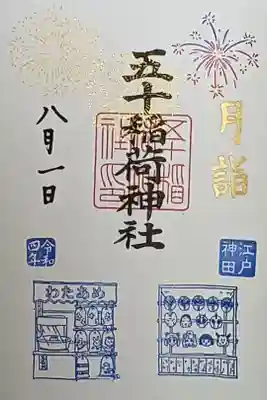 月詣
江戸
神田
五十稲荷神社
八月一日
令和
四年
わたあめ